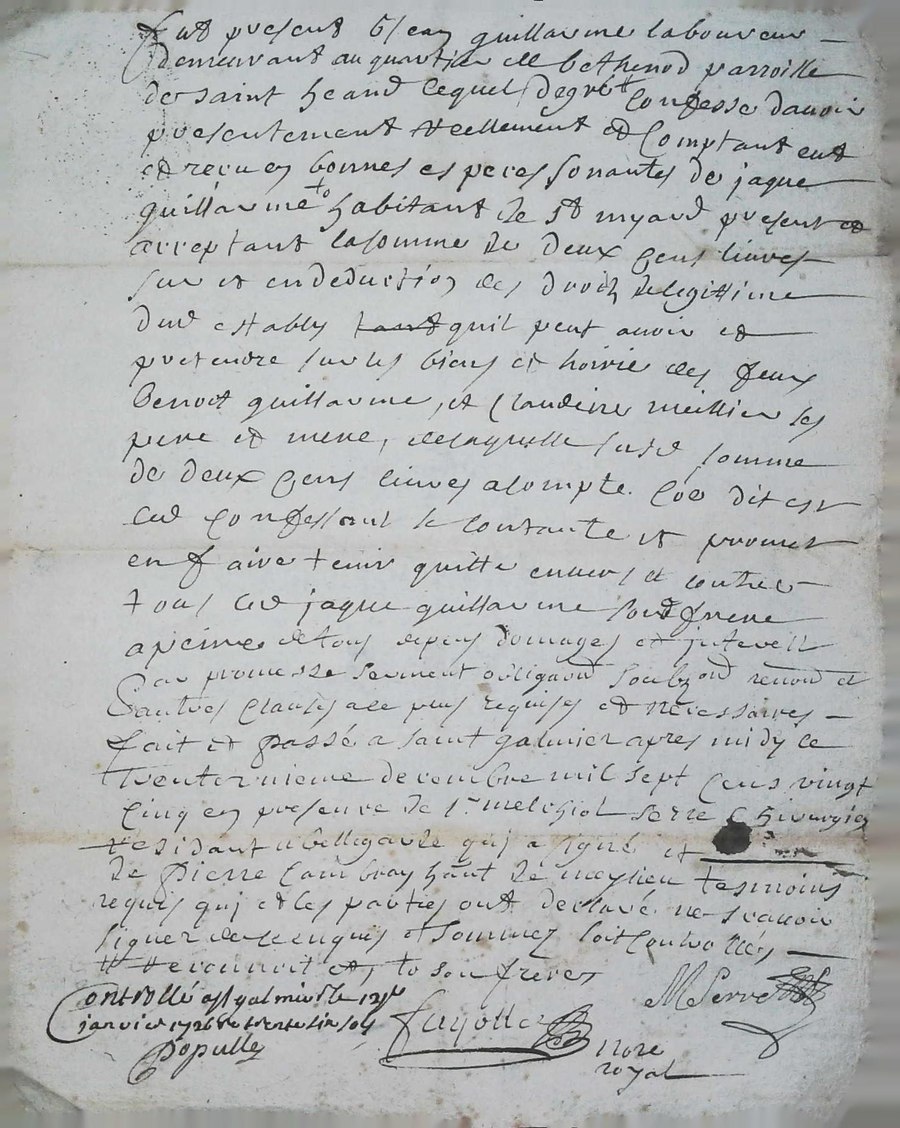 fut present Sr Jean guillaume laboureur
demeurant au quartier de bethenod parroisse
de saint heand lequel degré confesse davoir
presentement reellement et comptant eut
et receu en bonnes especes sonantes de jaque
guillaume +° habitant de st myard present et
acceptant la somme de deux cens livres
sur et en deduction des droitz de legittime
dud estably tant quil peut avoir et
pretendre sur les biens et hoirie des feux
Benoit guillaume, et Claudine meillier ses
pere et mere, de laquelle susd somme
de deux cens livres acompte coe dit est
led confessant se contante et promet
en faire tenir quitte envers et contre
tous led jaque guillaume soud frere
a peine de tous depens domages et interest
par promesse serment obligaon soubzon renon et
autres clauses a ce plus requises et necessaires
fait et passé a saint galmier apres midy le
trenteunieme decembre mil sept cens vingt
cinq en presence de sr melchiol serre chirurgien
residant a bellegarde qui a signé et
de Pierre Cambray hant de meylieu tesmoins
requis qui et les parties ont declaré ne scavoir
signer de ce enquis et sommez soit controllés
+° son frere
Controllé a st galmier le 12e
janvier 1726 Re trente six sols
Populle
fayolle
MSerre
nore
royal